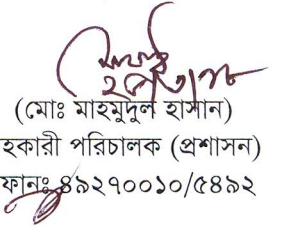 (মোঃ মাহমুদুল হাসান)
হকারী পরিচালক (প্রশাসন)
ফানঃ ৪৯২৭০০১০/৫৪৯২